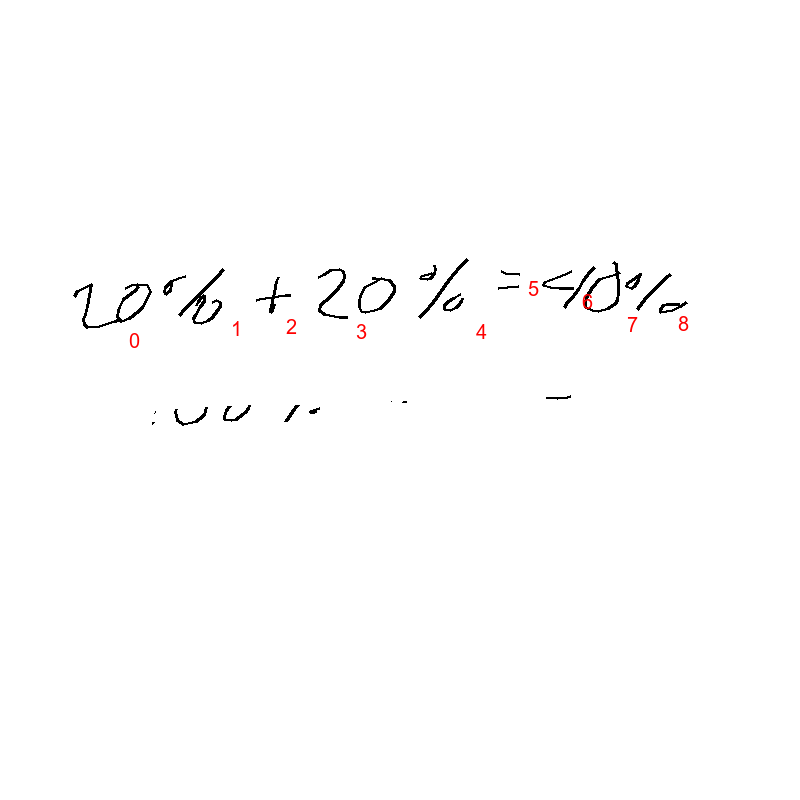 20% + 20% = 40%
0 1 2 3 4 5 6 7 8